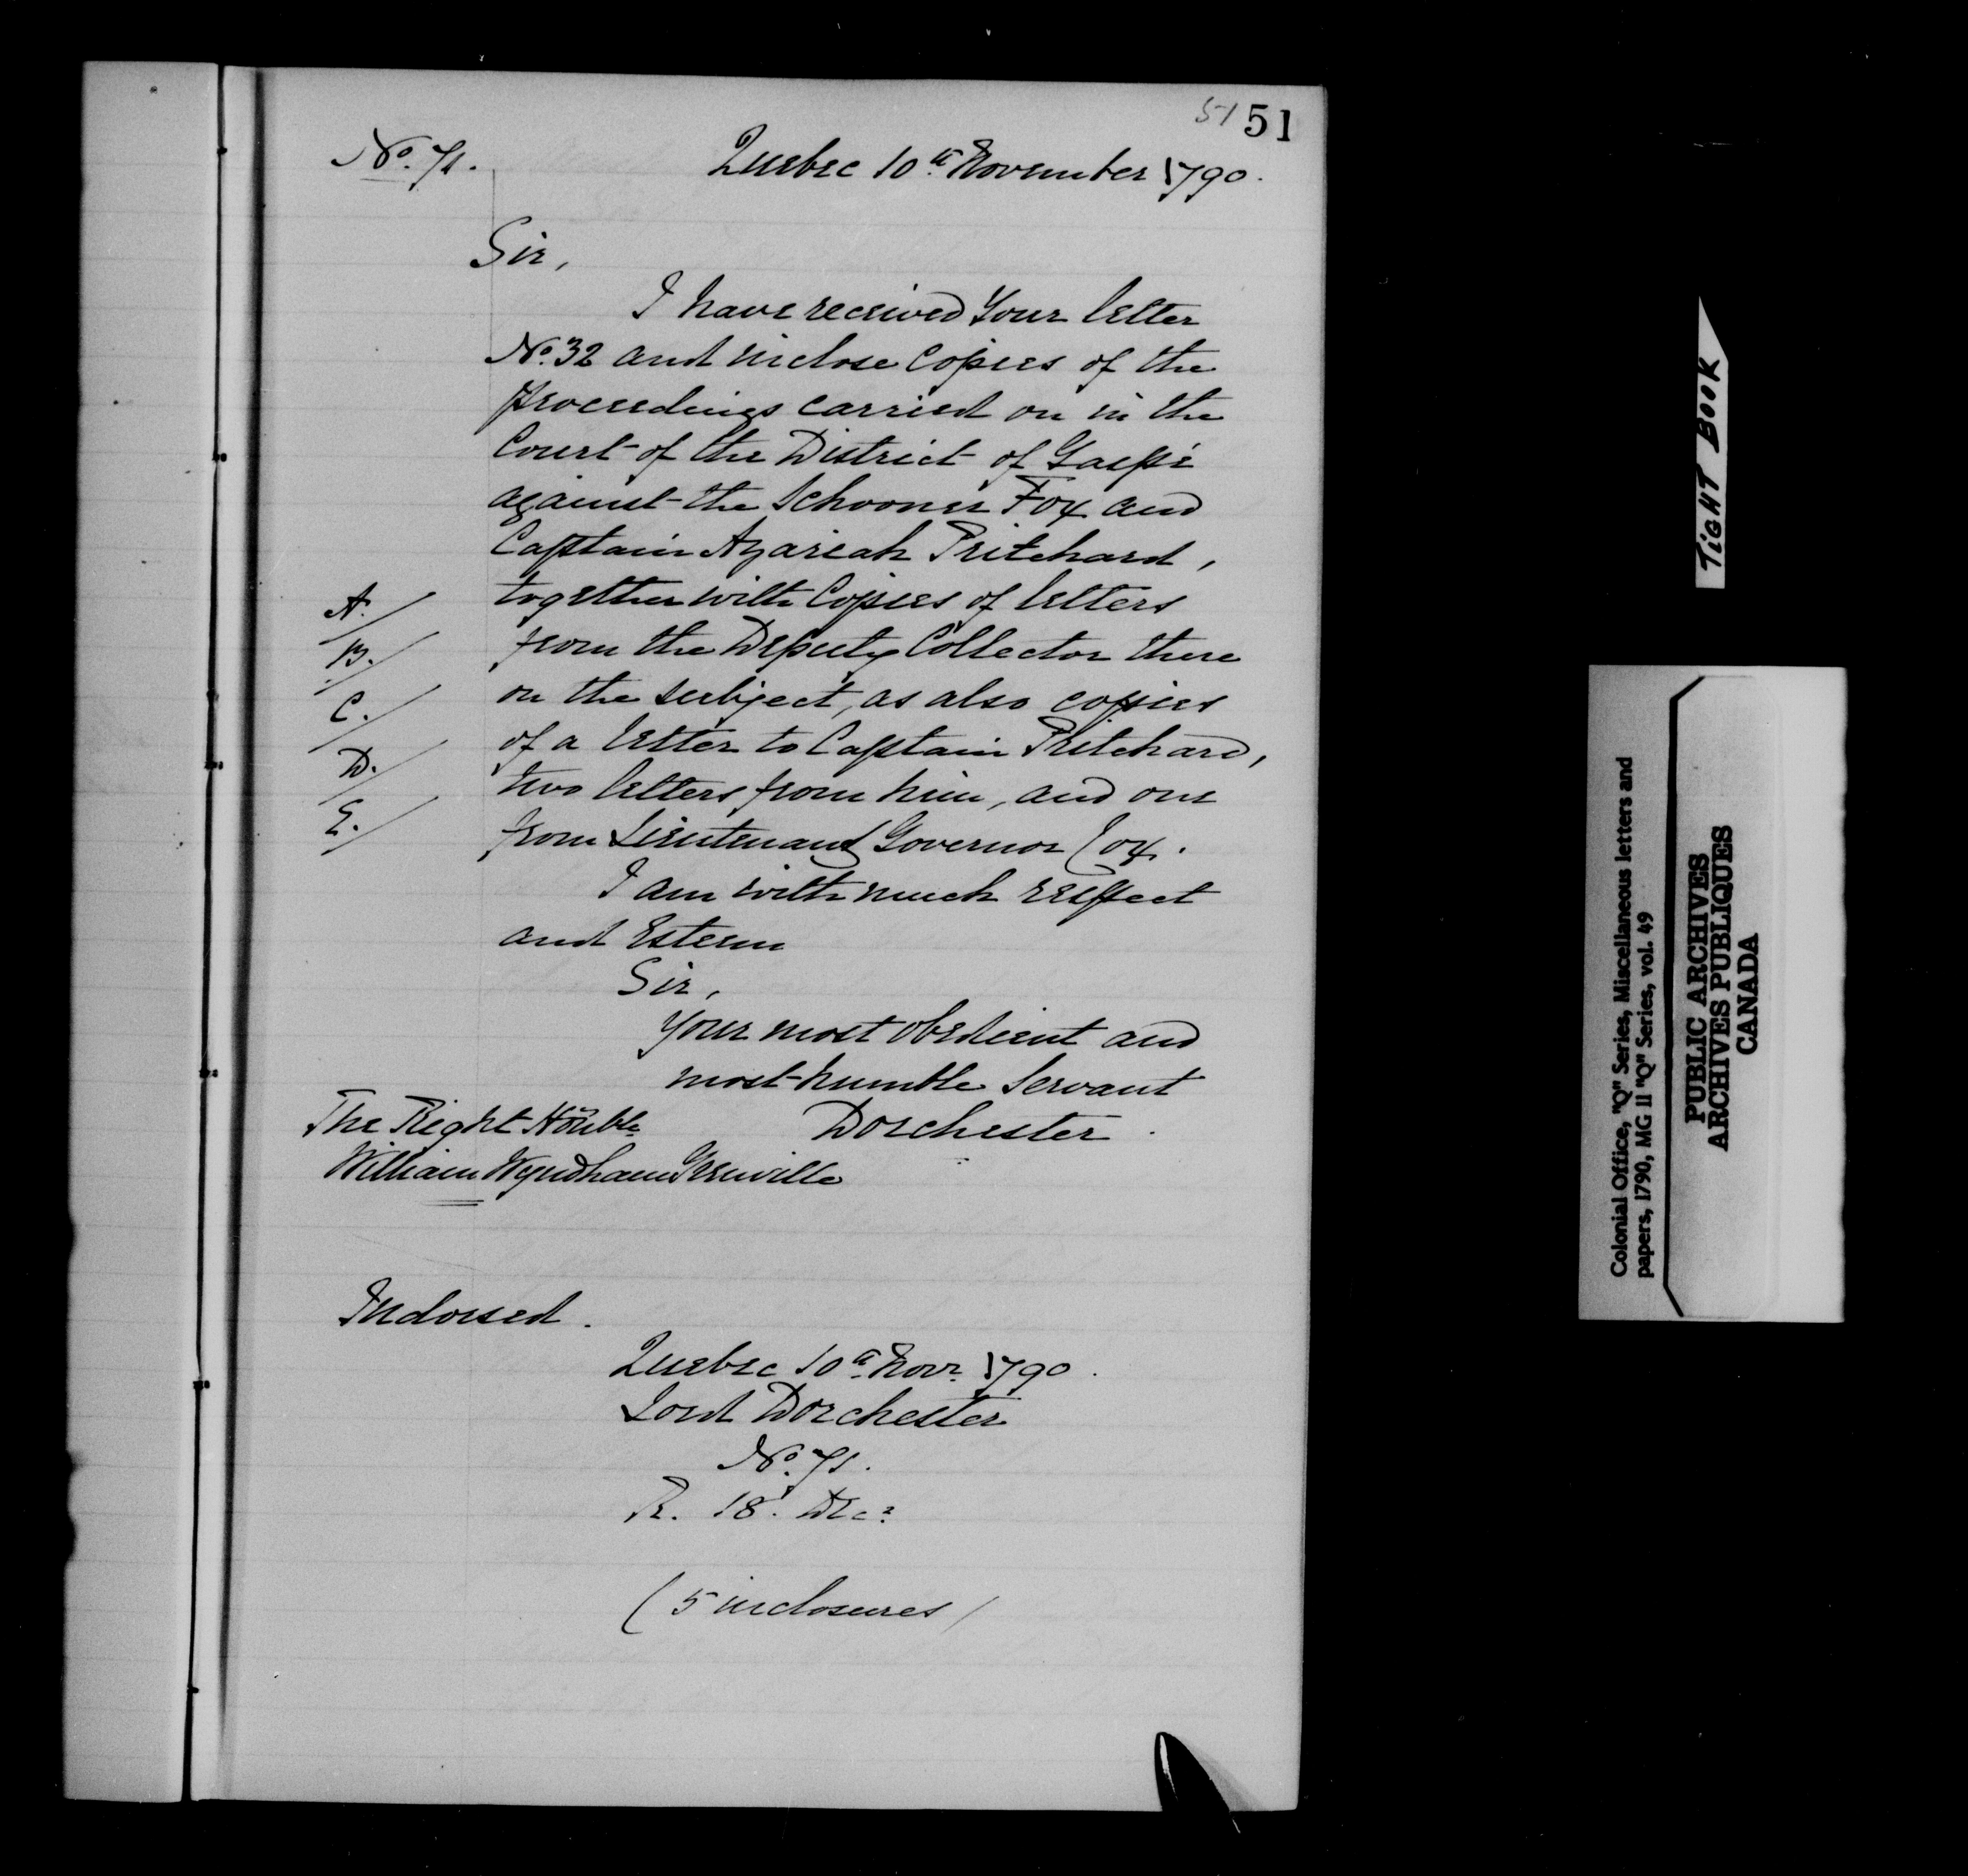 51 51
No. 71.
Quebec 10th November 1790.
Sir,
I have received Your letter
No. 32 and inclose Copies of the
proceedings carried on in the
Court of the District of Gaspé
against the Schooner Fox and
Captain Azariah Pritchard,
A. together with Copies of letters
B. from the Deputy Collector there
C. on the subject, as also copies
D. of a letter to Captain Pritchard,
E. two letters from him, and one
from Lieutenant Governor Cox.
I am with much respect
and Esteem
Sir,
Your most obedient and
most humble Servant
The Right Honble Dorchester.
William Wyndham Grenville
Indorsed.
Quebec 10th Novr 1790.
Lord Dorchester
No. 71.
R. 18. Decr
(5 inclosures)
TIGHT BOOK
Colonial Office, "Q" Series, Miscellaneous letters and
papers, 1790, MG 11 "Q" Series, vol. 49
PUBLIC ARCHIVES
ARCHIVES PUBLIQUES
CANADA